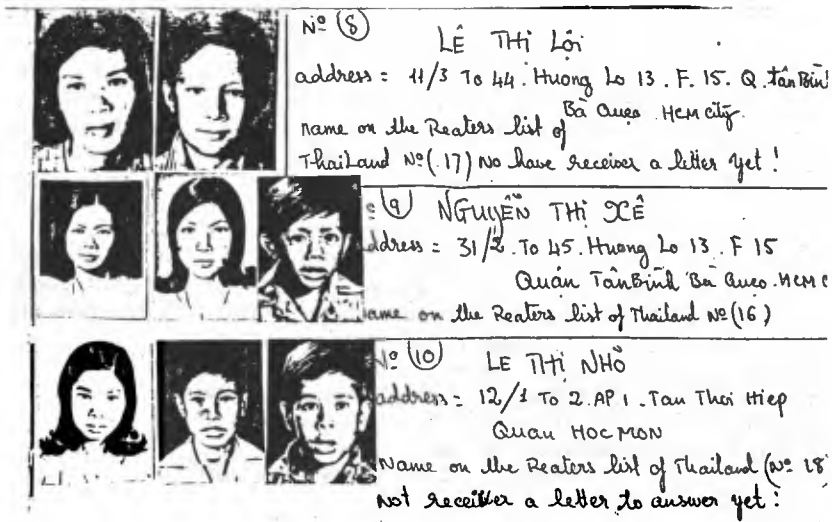 Nº (8) LÊ THỊ LỘI
address = 11/3 To 44. Huong Lo 13. F. 15. Q. Tân Bìn
Bà Queo. HCM city.
name on the Reaters list of
Thailand Nº (17) No have receiver a letter yet!
º (9) NGUYỄN THỊ XÊ
ddress = 31/2. To 45. Huong Lo 13. F 15
Quán Tân Bình Bà Queo. HCM C
ame on the Reaters list of Thailand Nº (16)
Nº (10) LE THỊ NHỎ
address = 12/1 To 2. AP 1. Tan Thoi Hiep
Quau HOCMON
Name on the Reaters list of Thailand (Nº 18
Not receitter a letter to answer yet!